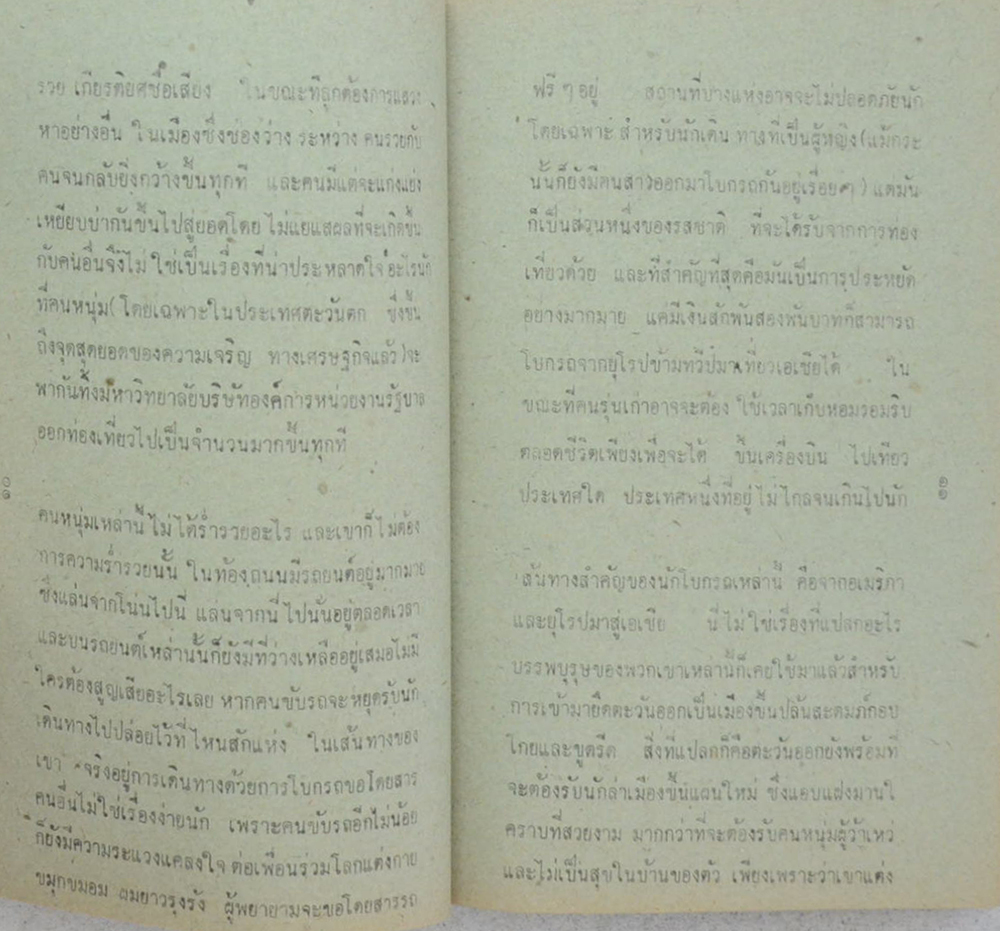 รวย เกียรติยศชื่อเสียง ในขณะที่ลูกต้องการแสวง
หาอย่างอื่น ในเมืองซึ่งช่องว่าง ระหว่าง คนรวยกับ
คนจนกลับยิ่งกว้างขึ้นทุกที และคนมีแต่จะแก่งแย่ง
เหยียบบ่ากันขึ้นไปสู่ยอดโดย ไม่แยแสผลที่จะเกิดขึ้น
กับคนอื่นจึงไม่ ใช่เป็นเรื่องที่น่าประหลาดใจ อะไรนัก
ที่คนหนุ่ม(โดยเฉพาะในประเทศตะวันตก ซึ่งขึ้น
ถึงจุดสุดยอดของความเจริญ ทางเศรษฐกิจแล้ว)จะ
พากันทิ้งมหาวิทยาลัยบริษัทองค์การหน่วยงานรัฐบาล
ออกท่องเที่ยวไปเป็นจำนวนมากขึ้นทุกที
๑๐
คนหนุ่มเหล่านี้ ไม่ ได้ร่ำรวยอะไร และเขาก็ ไม่ต้อง
การความร่ำรวยนั้น ในท้องถนนมีรถยนต์อยู่มากมาย
ซึ่งแล่นจากโน่นไปนี่ แล่นจากนี่ ไปนั่นอยู่ตลอดเวลา
และบนรถยนต์เหล่านั้นก็ยังมีที่ว่างเหลืออยู่เสมอไม่มี
ใครต้องสูญเสียอะไรเลย หากคนขับรถจะหยุดรับนัก
เดินทางไปปล่อยไว้ที่ ไหนสักแห่ง ในเส้นทางของ
เขา จริงอยู่การเดินทางด้วยการโบกรถขอโดยสาร
คนอื่นไม่ใช่เรื่องง่ายนัก เพราะคนขับรถอีกไม่น้อย
ก็ยังมีความระแวงแคลงใจ ต่อเพื่อนร่วมโลกแต่งกาย
ขมุกขมอม ผมยาวรุงรัง ผู้พยายามจะขอโดยสารรถ
ฟรี ๆ อยู่ สถานที่บางแห่งอาจจะไม่ปลอดภัยนัก
โดยเฉพาะ สำหรับนักเดิน ทางที่เป็นผู้หญิง(แม้กระ
นั้นก็ยังมีคนสาวออกมาโบกรถกันอยู่เรื่อย ๆ) แต่มัน
ก็เป็นส่วนหนึ่งของรสชาติ ที่จะได้รับจากการท่อง
เที่ยวด้วย และที่สำคัญที่สุดคือมันเป็นการประหยัด
อย่างมากมาย แค่มีเงินสักพันสองพันบาทก็สามารถ
โบกรถจากยุโรปข้ามทวีปมาเที่ยวเอเซียได้ ใน
ขณะที่คนรุ่นเก่าอาจจะต้อง ใช้เวลาเก็บหอมรอมริบ
ตลอดชีวิตเพียงเพื่อจะได้ ขึ้นเครื่องบิน ไปเที่ยว
ประเทศใด ประเทศหนึ่งที่อยู่ ไม่ ไกลจนเกินไปนัก
๑๑
เส้นทางสำคัญของนักโบกรถเหล่านี้ คือจากอเมริกา
และยุโรปมาสู่เอเซีย นี่ ไม่ ใช่เรื่องที่แปลกอะไร
บรรพบุรุษของพวกเขาเหล่านี้ก็เคยใช้มาแล้วสำหรับ
การเข้ามายึดตะวันออกเป็นเมืองขึ้นปล้นสะดมภ์กอบ
โกยและขูดรีด สิ่งที่แปลกก็คือตะวันออกยังพร้อมที่
จะต้องรับนักล่าเมืองขึ้นแผนใหม่ ซึ่งแอบแฝงมาใน
คราบที่สวยงาม มากกว่าที่จะต้องรับคนหนุ่มผู้ว้าเหว่
และไม่เป็นสุขในบ้านของตัว เพียงเพราะว่าเขาแต่ง